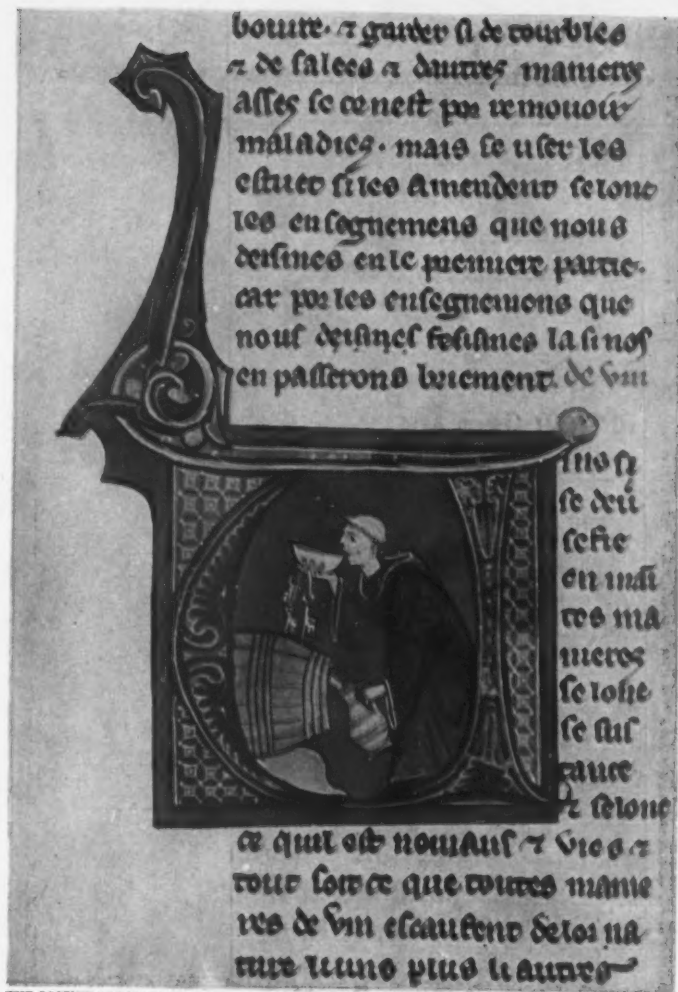 boiure. ⁊ garder si de tourbles
⁊ de salees ⁊ dautres manieres
asses se ce nest por remouoir
maladies. mais se user les
estuet si les amendent selonc
les ensegnemens que nous
desimes en le premiere partie.
car por les ensegnemens que
nous desimes fesismes la si nos
en passerons briement. de vin
ins si
se deu
sefie
en main
tes ma
nieres
selonc
se sus
tance
⁊ selonc
ce quil est nouiaus ⁊ vies ⁊
tout soit ce que toutes manie
res de vin escaufent de lor na
ture li uns plus li autres